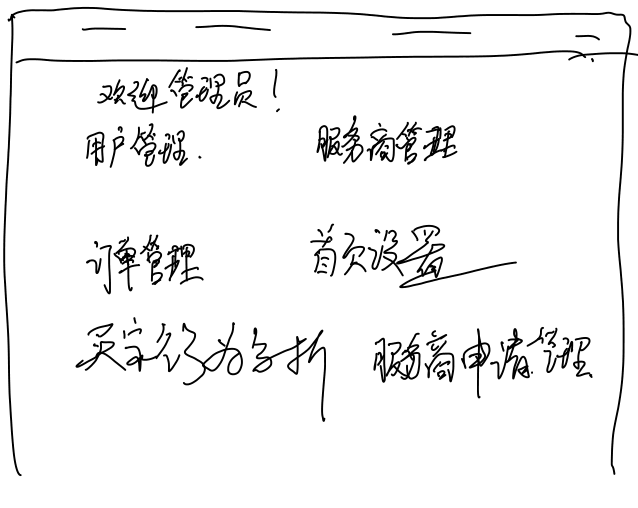 欢迎管理员！
用户管理.
服务商管理
订单管理
首页设置
买家行为分析
服务商申请管理